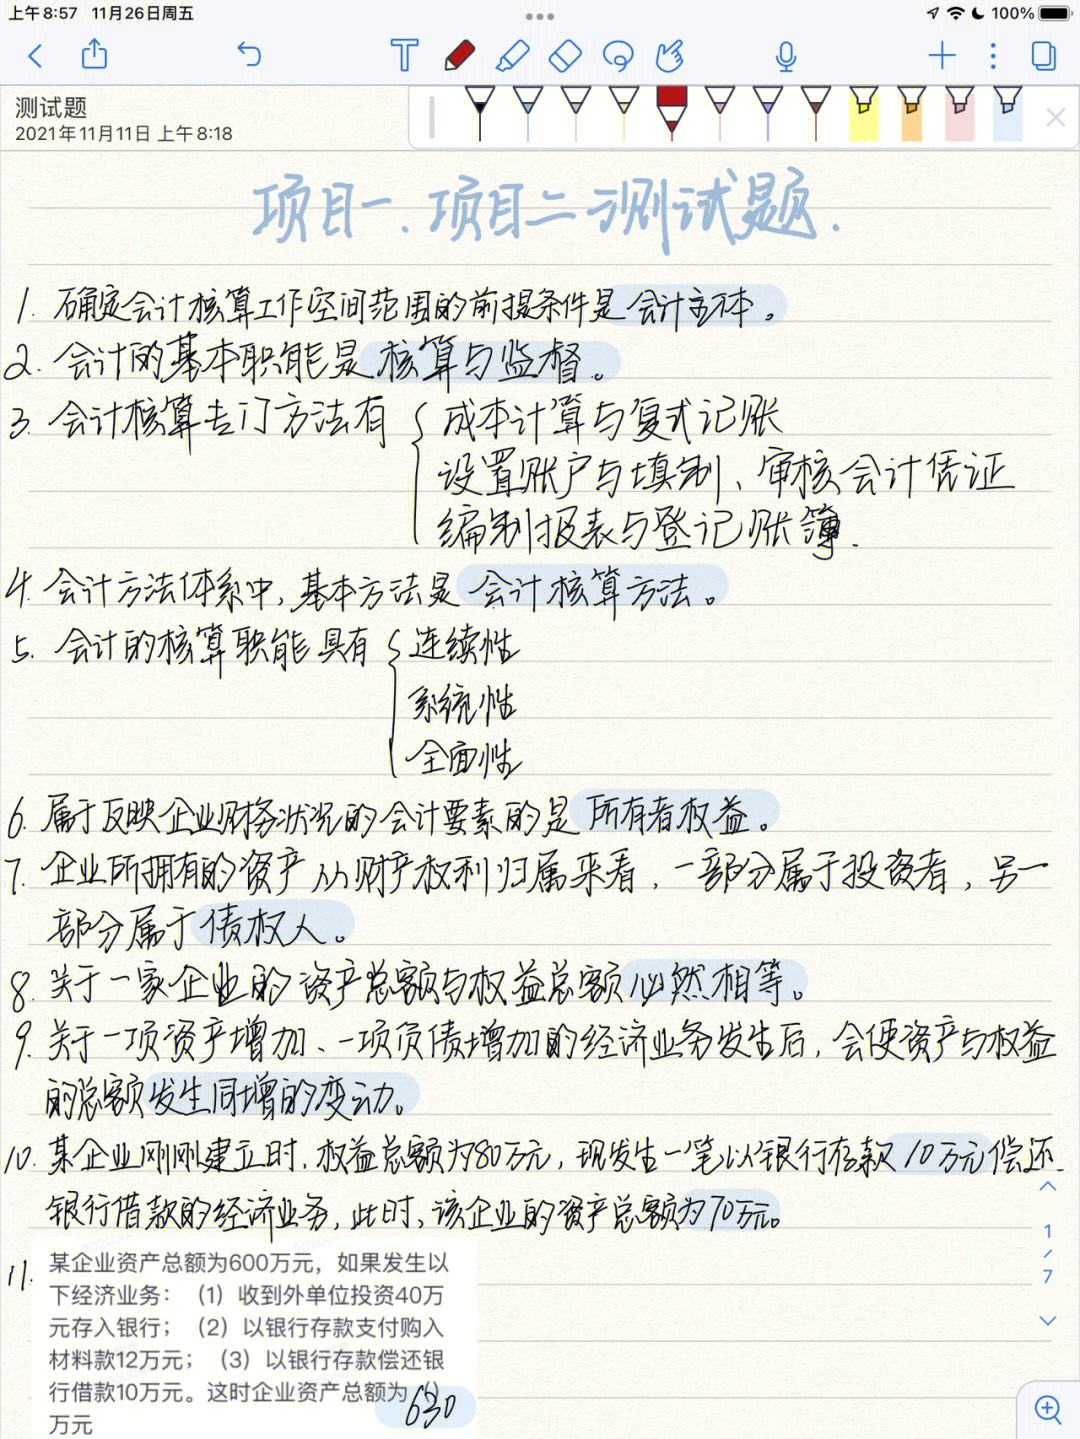 上午8:57 11月26日周五
100%
测试题
2021年11月11日 上午8:18
项目一、项目二测试题.
1. 确定会计核算工作空间范围的前提条件是会计主体。
2. 会计的基本职能是核算与监督。
3. 会计核算专门方法有 { 成本计算与复式记账
设置账户与填制、审核会计凭证
编制报表与登记账簿.
4. 会计方法体系中,基本方法是会计核算方法。
5. 会计的核算职能具有 { 连续性
系统性
全面性
6. 属于反映企业财务状况的会计要素的是所有者权益。
7. 企业所拥有的资产从财产权利归属来看,一部分属于投资者,另一
部分属于债权人。
8. 关于一家企业的资产总额与权益总额必然相等。
9. 关于一项资产增加、一项负债增加的经济业务发生后,会使资产与权益
的总额发生同增的变动。
10. 某企业刚刚建立时,权益总额为80万元,现发生一笔以银行存款10万元偿还
银行借款的经济业务,此时,该企业的资产总额为70万元。
11. 某企业资产总额为600万元，如果发生以
下经济业务：（1）收到外单位投资40万
元存入银行；（2）以银行存款支付购入
材料款12万元；（3）以银行存款偿还银
行借款10万元。这时企业资产总额为（630）
万元
1
/
7